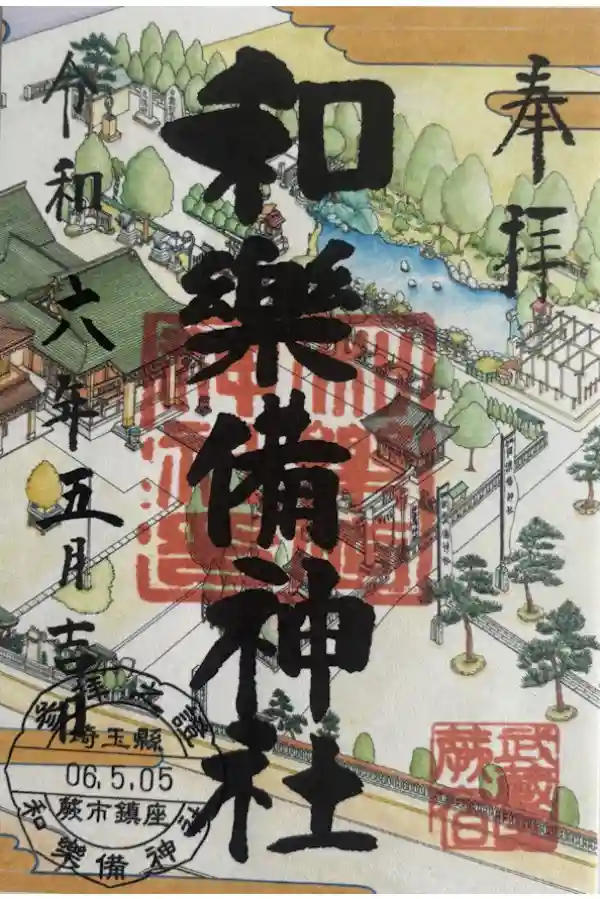 奉拝
和樂備神社
令和六年五月吉日
埼玉縣
06.5.05
蕨市鎮座
和樂備神社
武蔵国
蕨宿